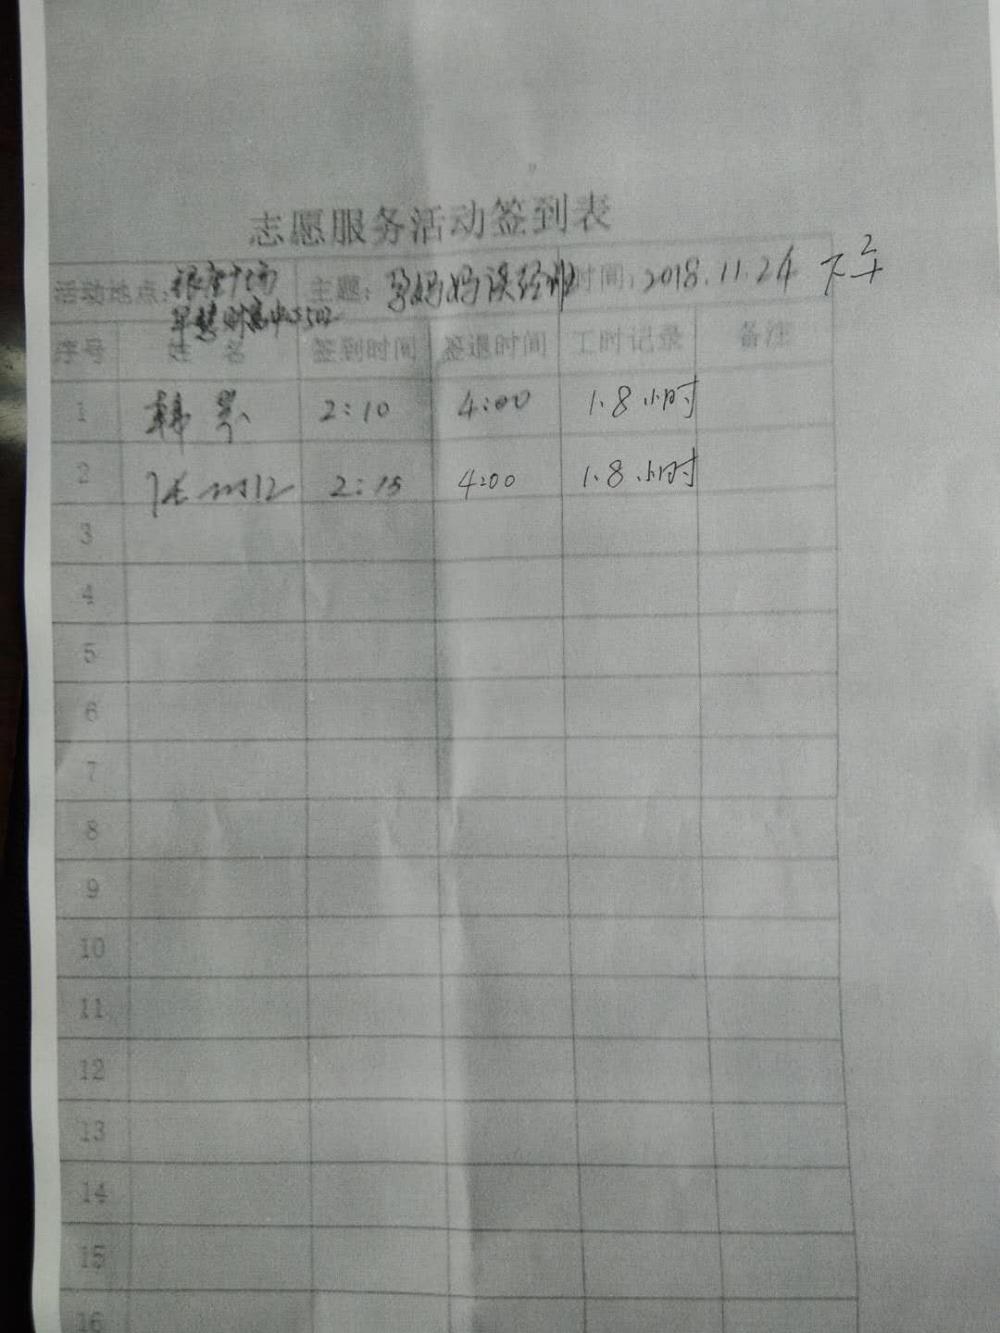 志愿服务活动签到表
活动地点: 银座广场 主题: 孕妈妈读经班 时间: 2018.11.24 下午
序号 姓名 签到时间 签退时间 工时记录 备注
1 韩 2:10 4:00 1.8小时
2 张 2:15 4:00 1.8小时
3
4
5
6
7
8
9
10
11
12
13
14
15
16